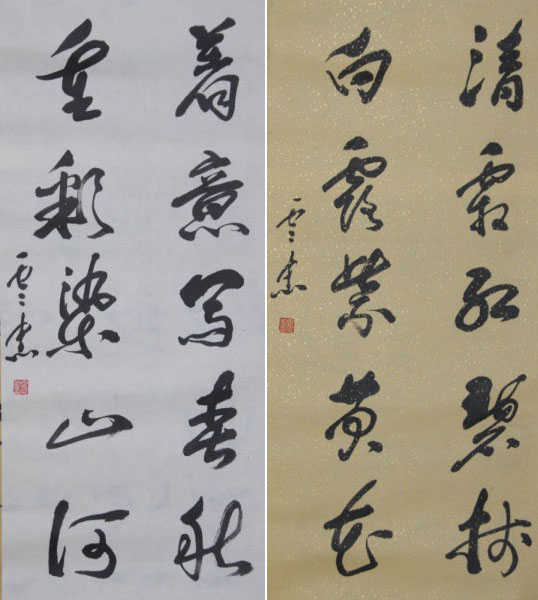 着意写春秋
重彩染山河
清霜红碧树
白露紫黄花